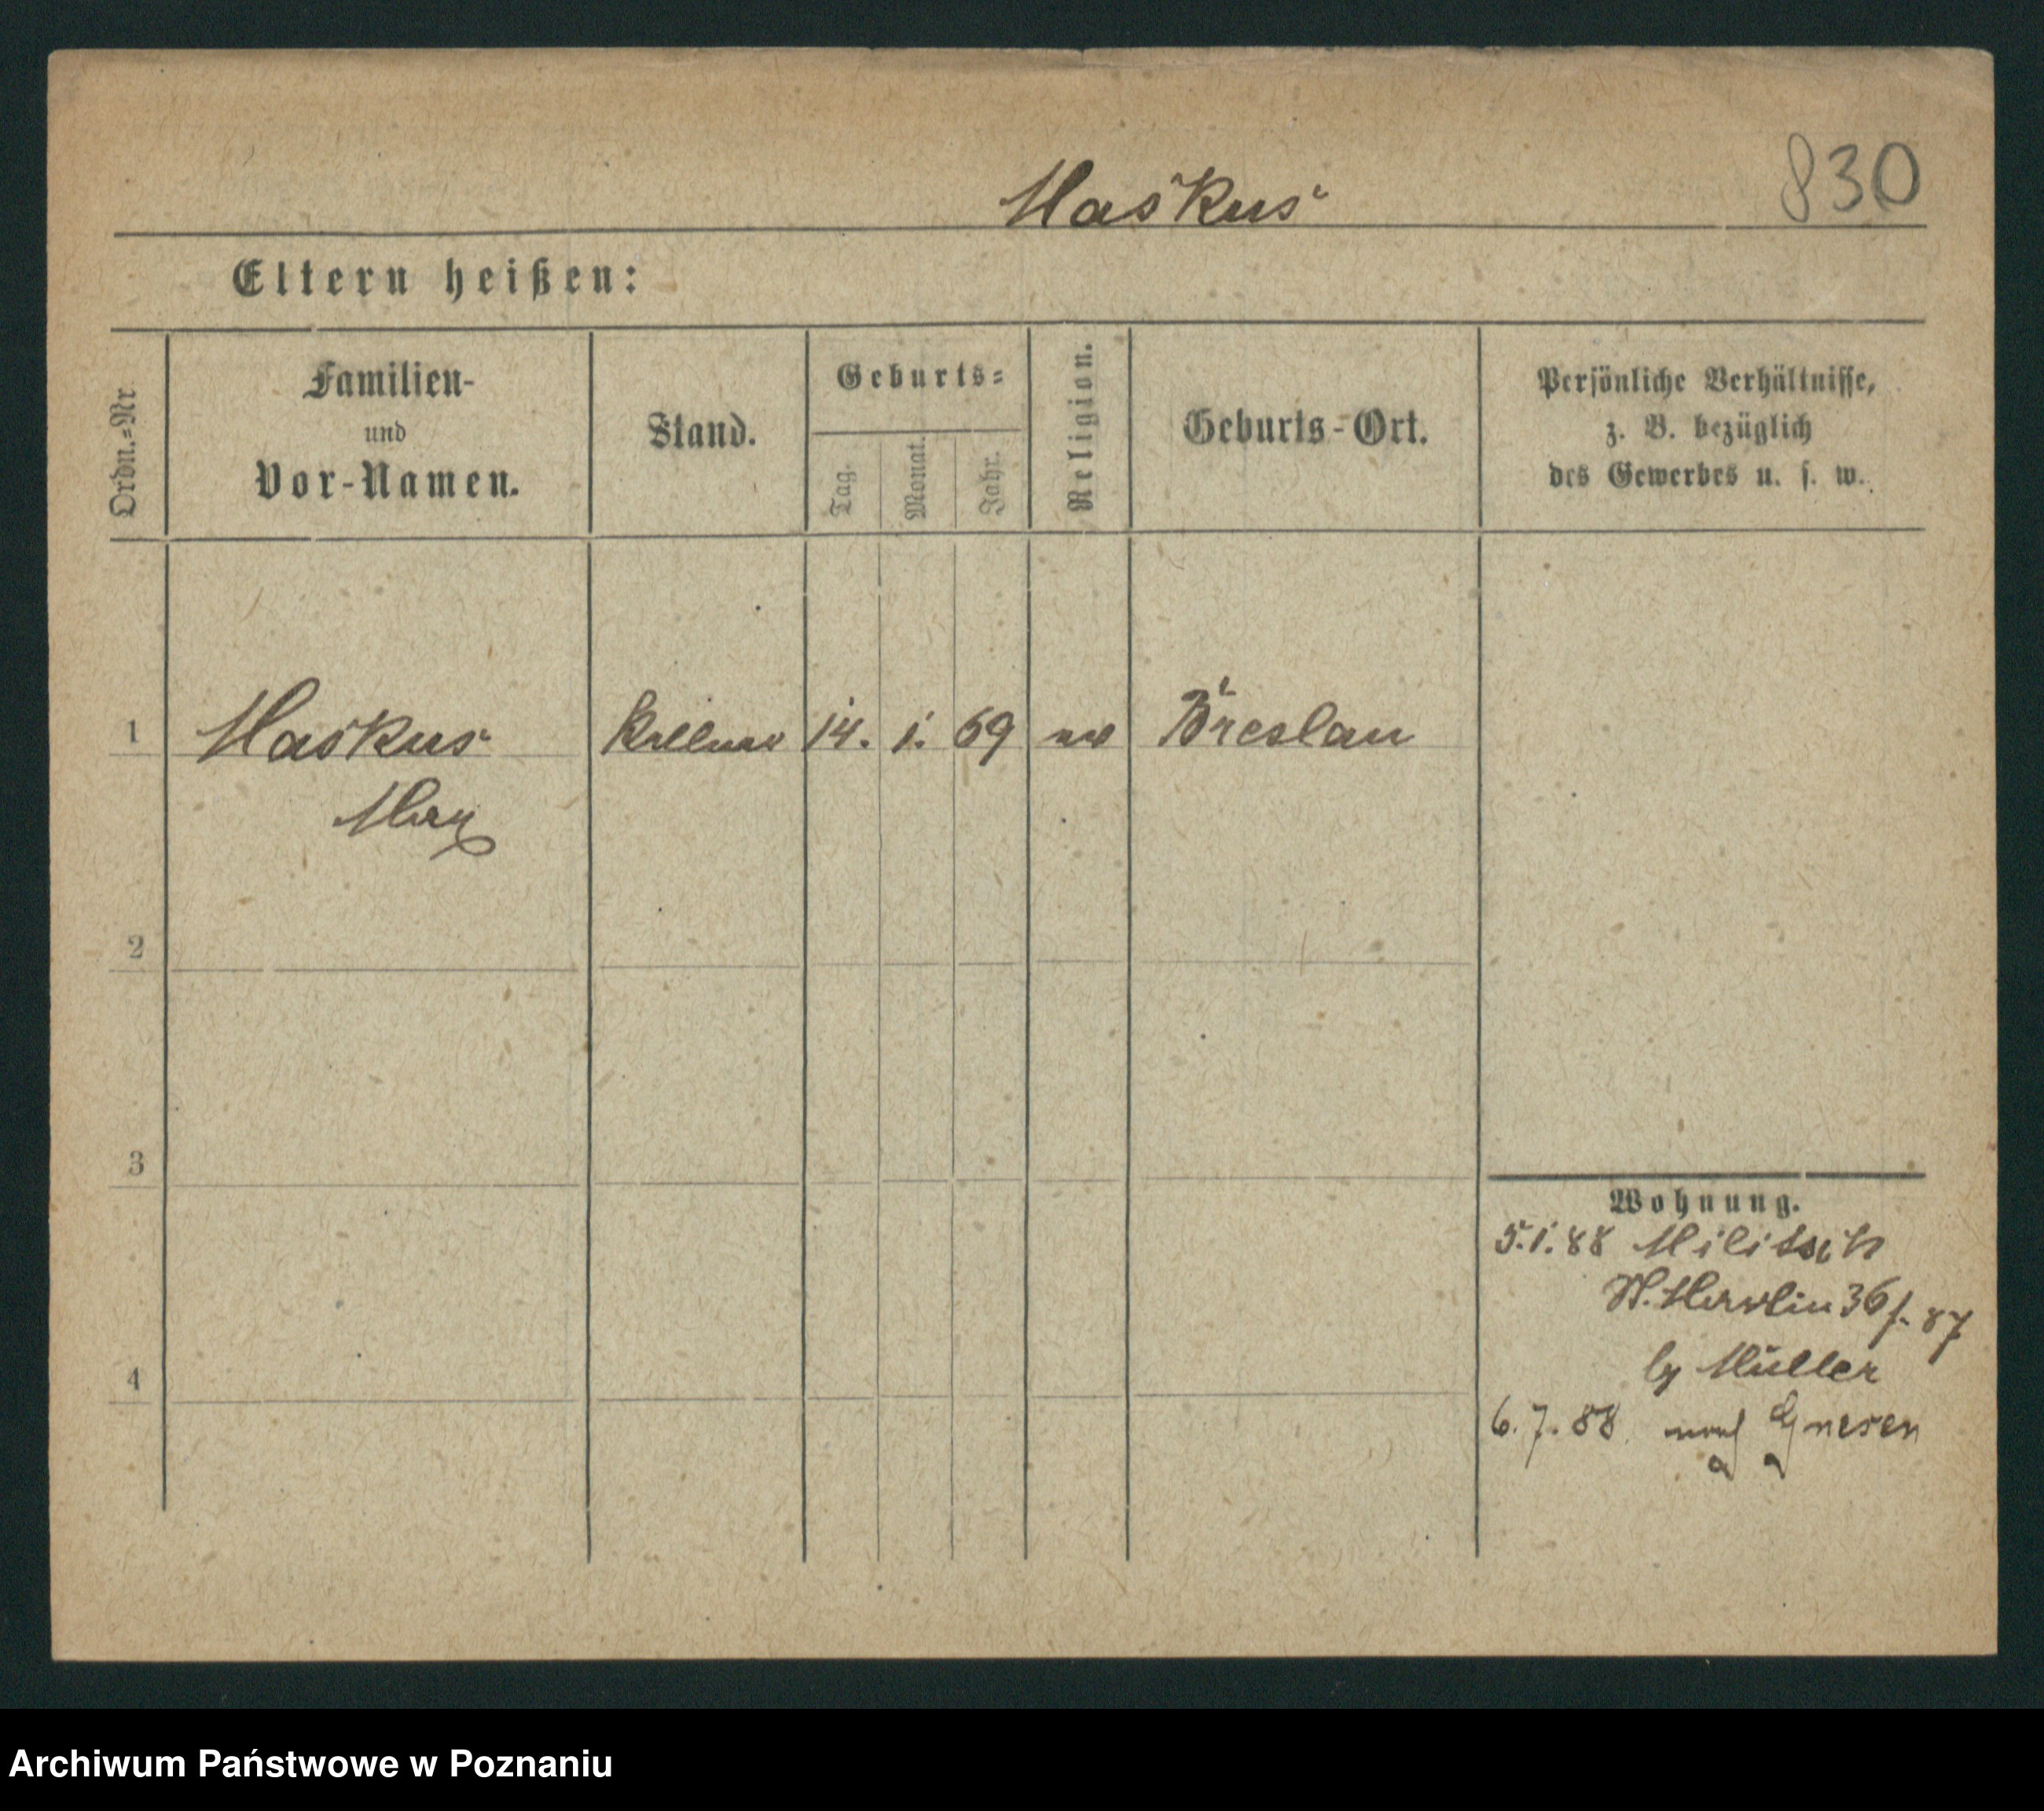 830
Maskus
Eltern heißen:
Ordn.=Nr.
Familien-
und
Vor-Namen.
Stand.
Geburts=
Tag.
Monat.
Jahr.
Religion.
Geburts-Ort.
Persönliche Verhältnisse,
z. B. bezüglich
des Gewerbes u. s. w.
1 Maskus Kellner 14. 1. 69 Breslau
Max
2
3
4
Wohnung.
5.1.88 Militsch
St. Martin 36 f. 87
by Müller
6. 7. 88. nach Gnesen
Archiwum Państwowe w Poznaniu